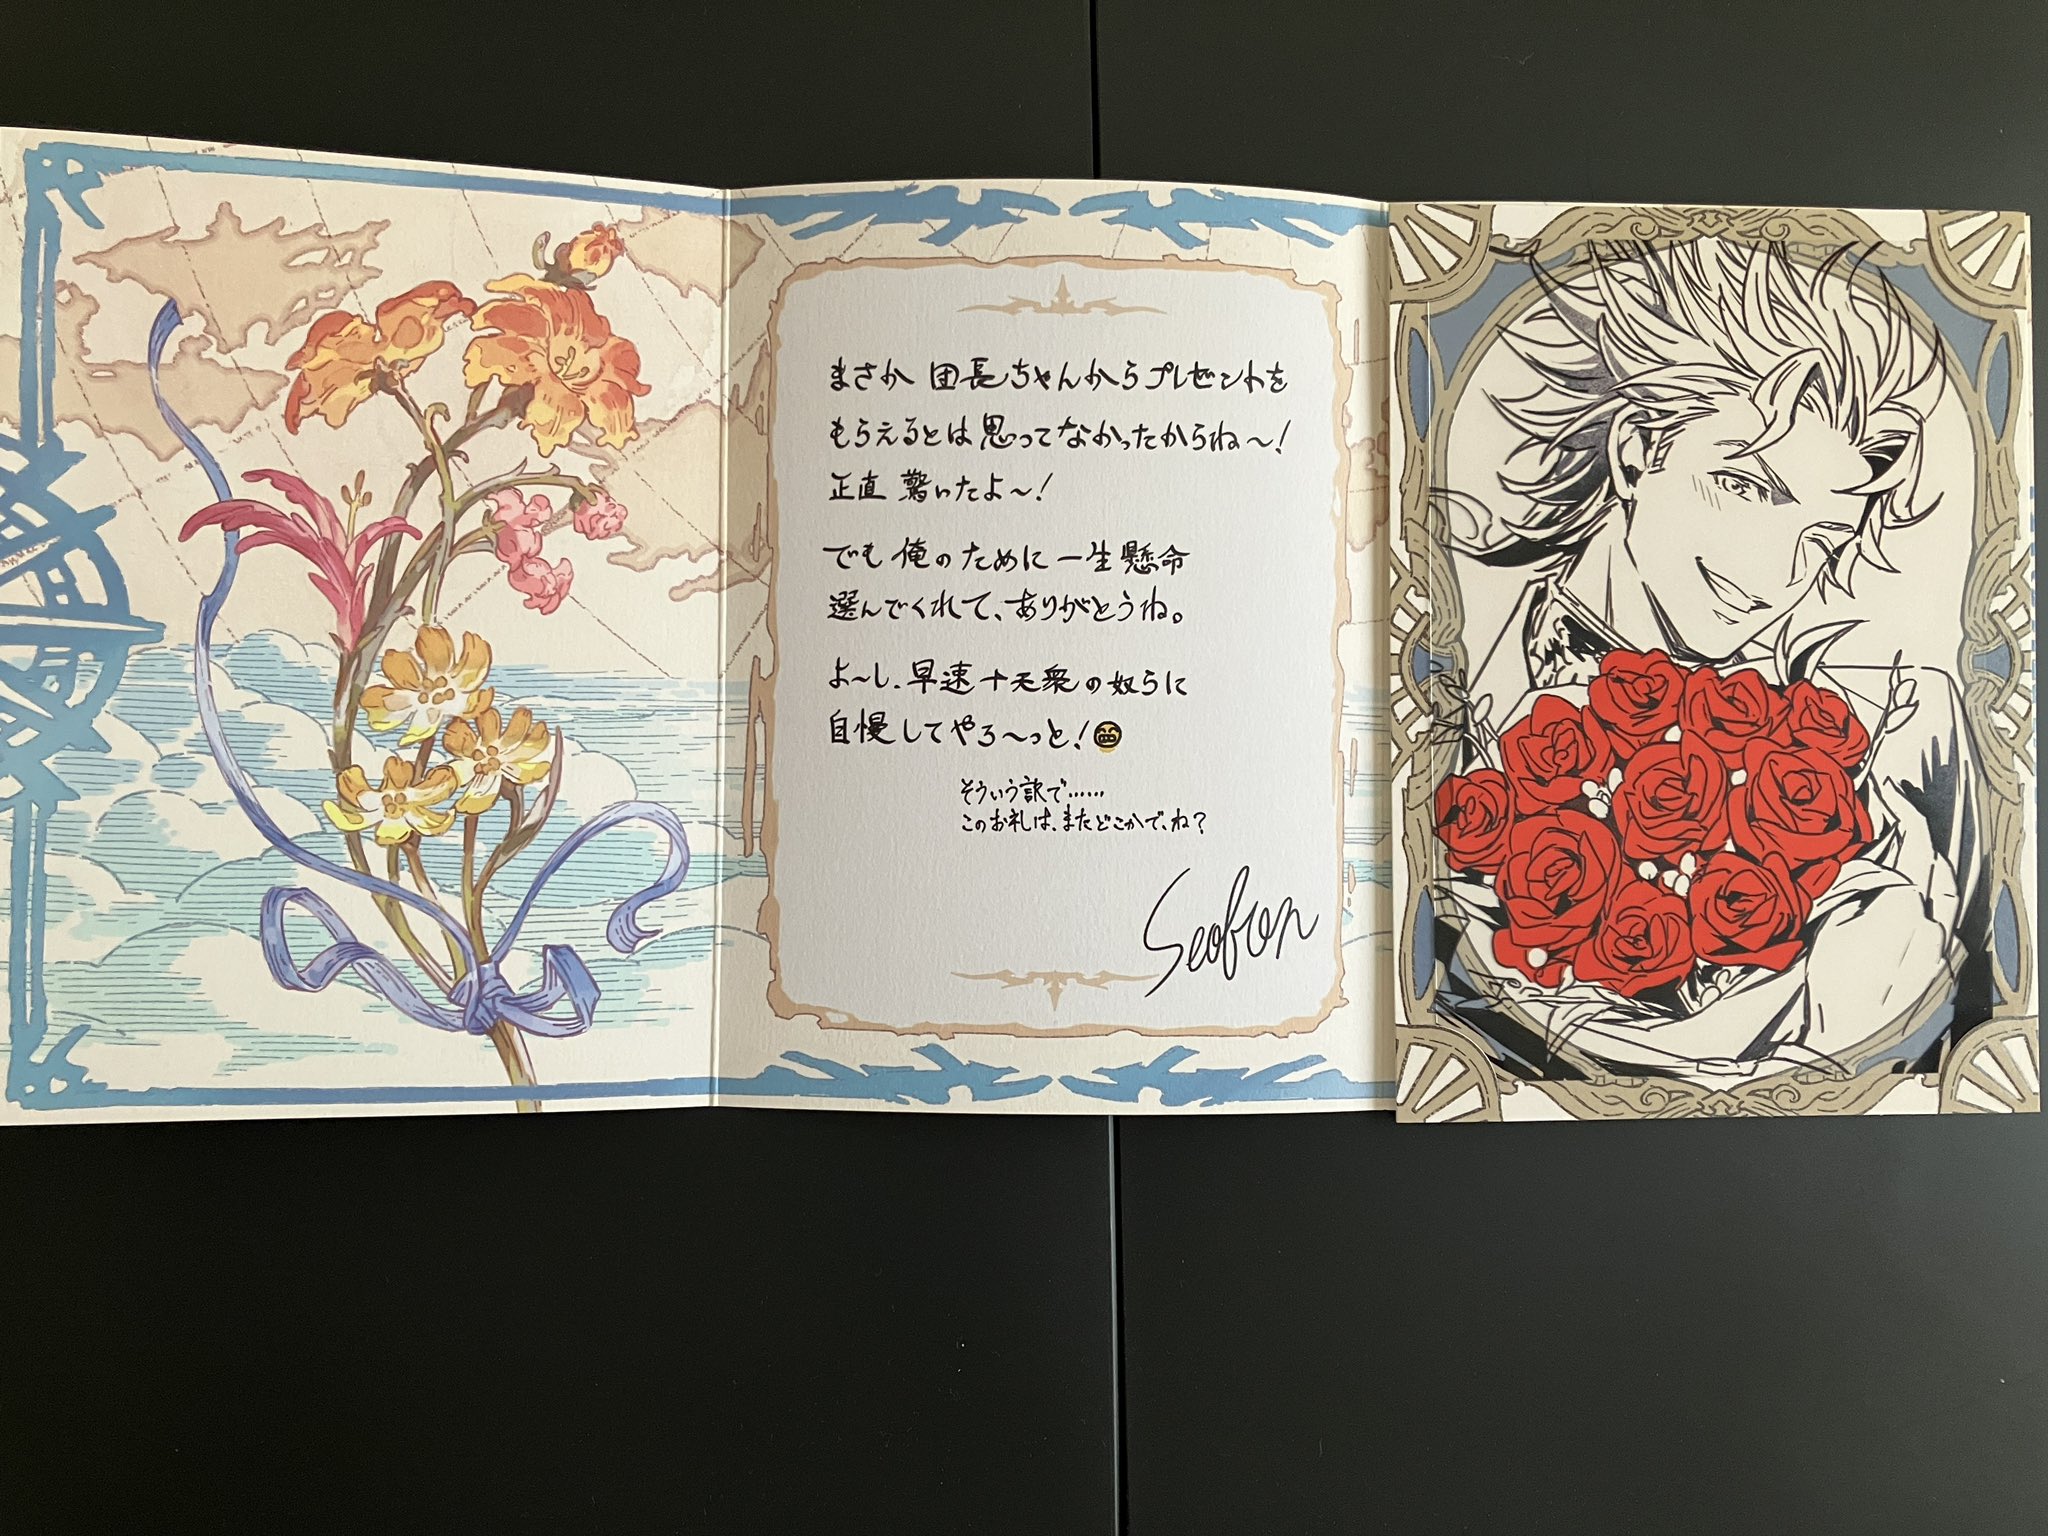 まさか 団長ちゃんからプレゼントを
もらえるとは思ってなかったからね〜!
正直 驚いたよ〜!
でも 俺のために一生懸命
選んでくれて、ありがとうね。
よ〜し、早速十天衆の奴らに
自慢してやろ〜っと!😁
そういう訳で……
このお礼は、またどこかで、ね?
Seofon